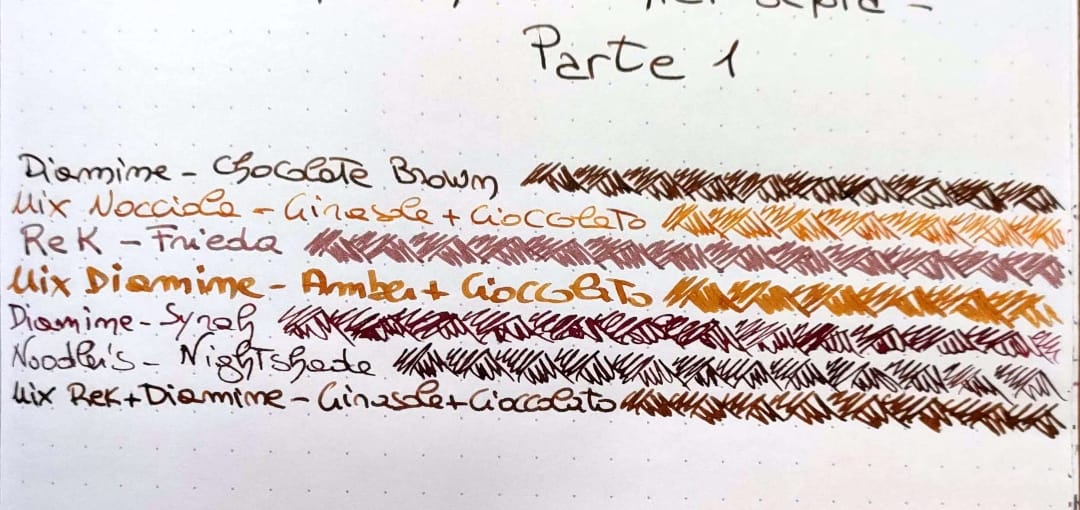 Parte 1
Diamine - Chocolate Brown
Mix Nocciola - Girasole + Cioccolato
ReK - Frieda
Mix Diamine - Amber + Cioccolato
Diamine - Syrah
Noodler's - Nightshade
Mix Rek + Diamine - Girasole + Cioccolato